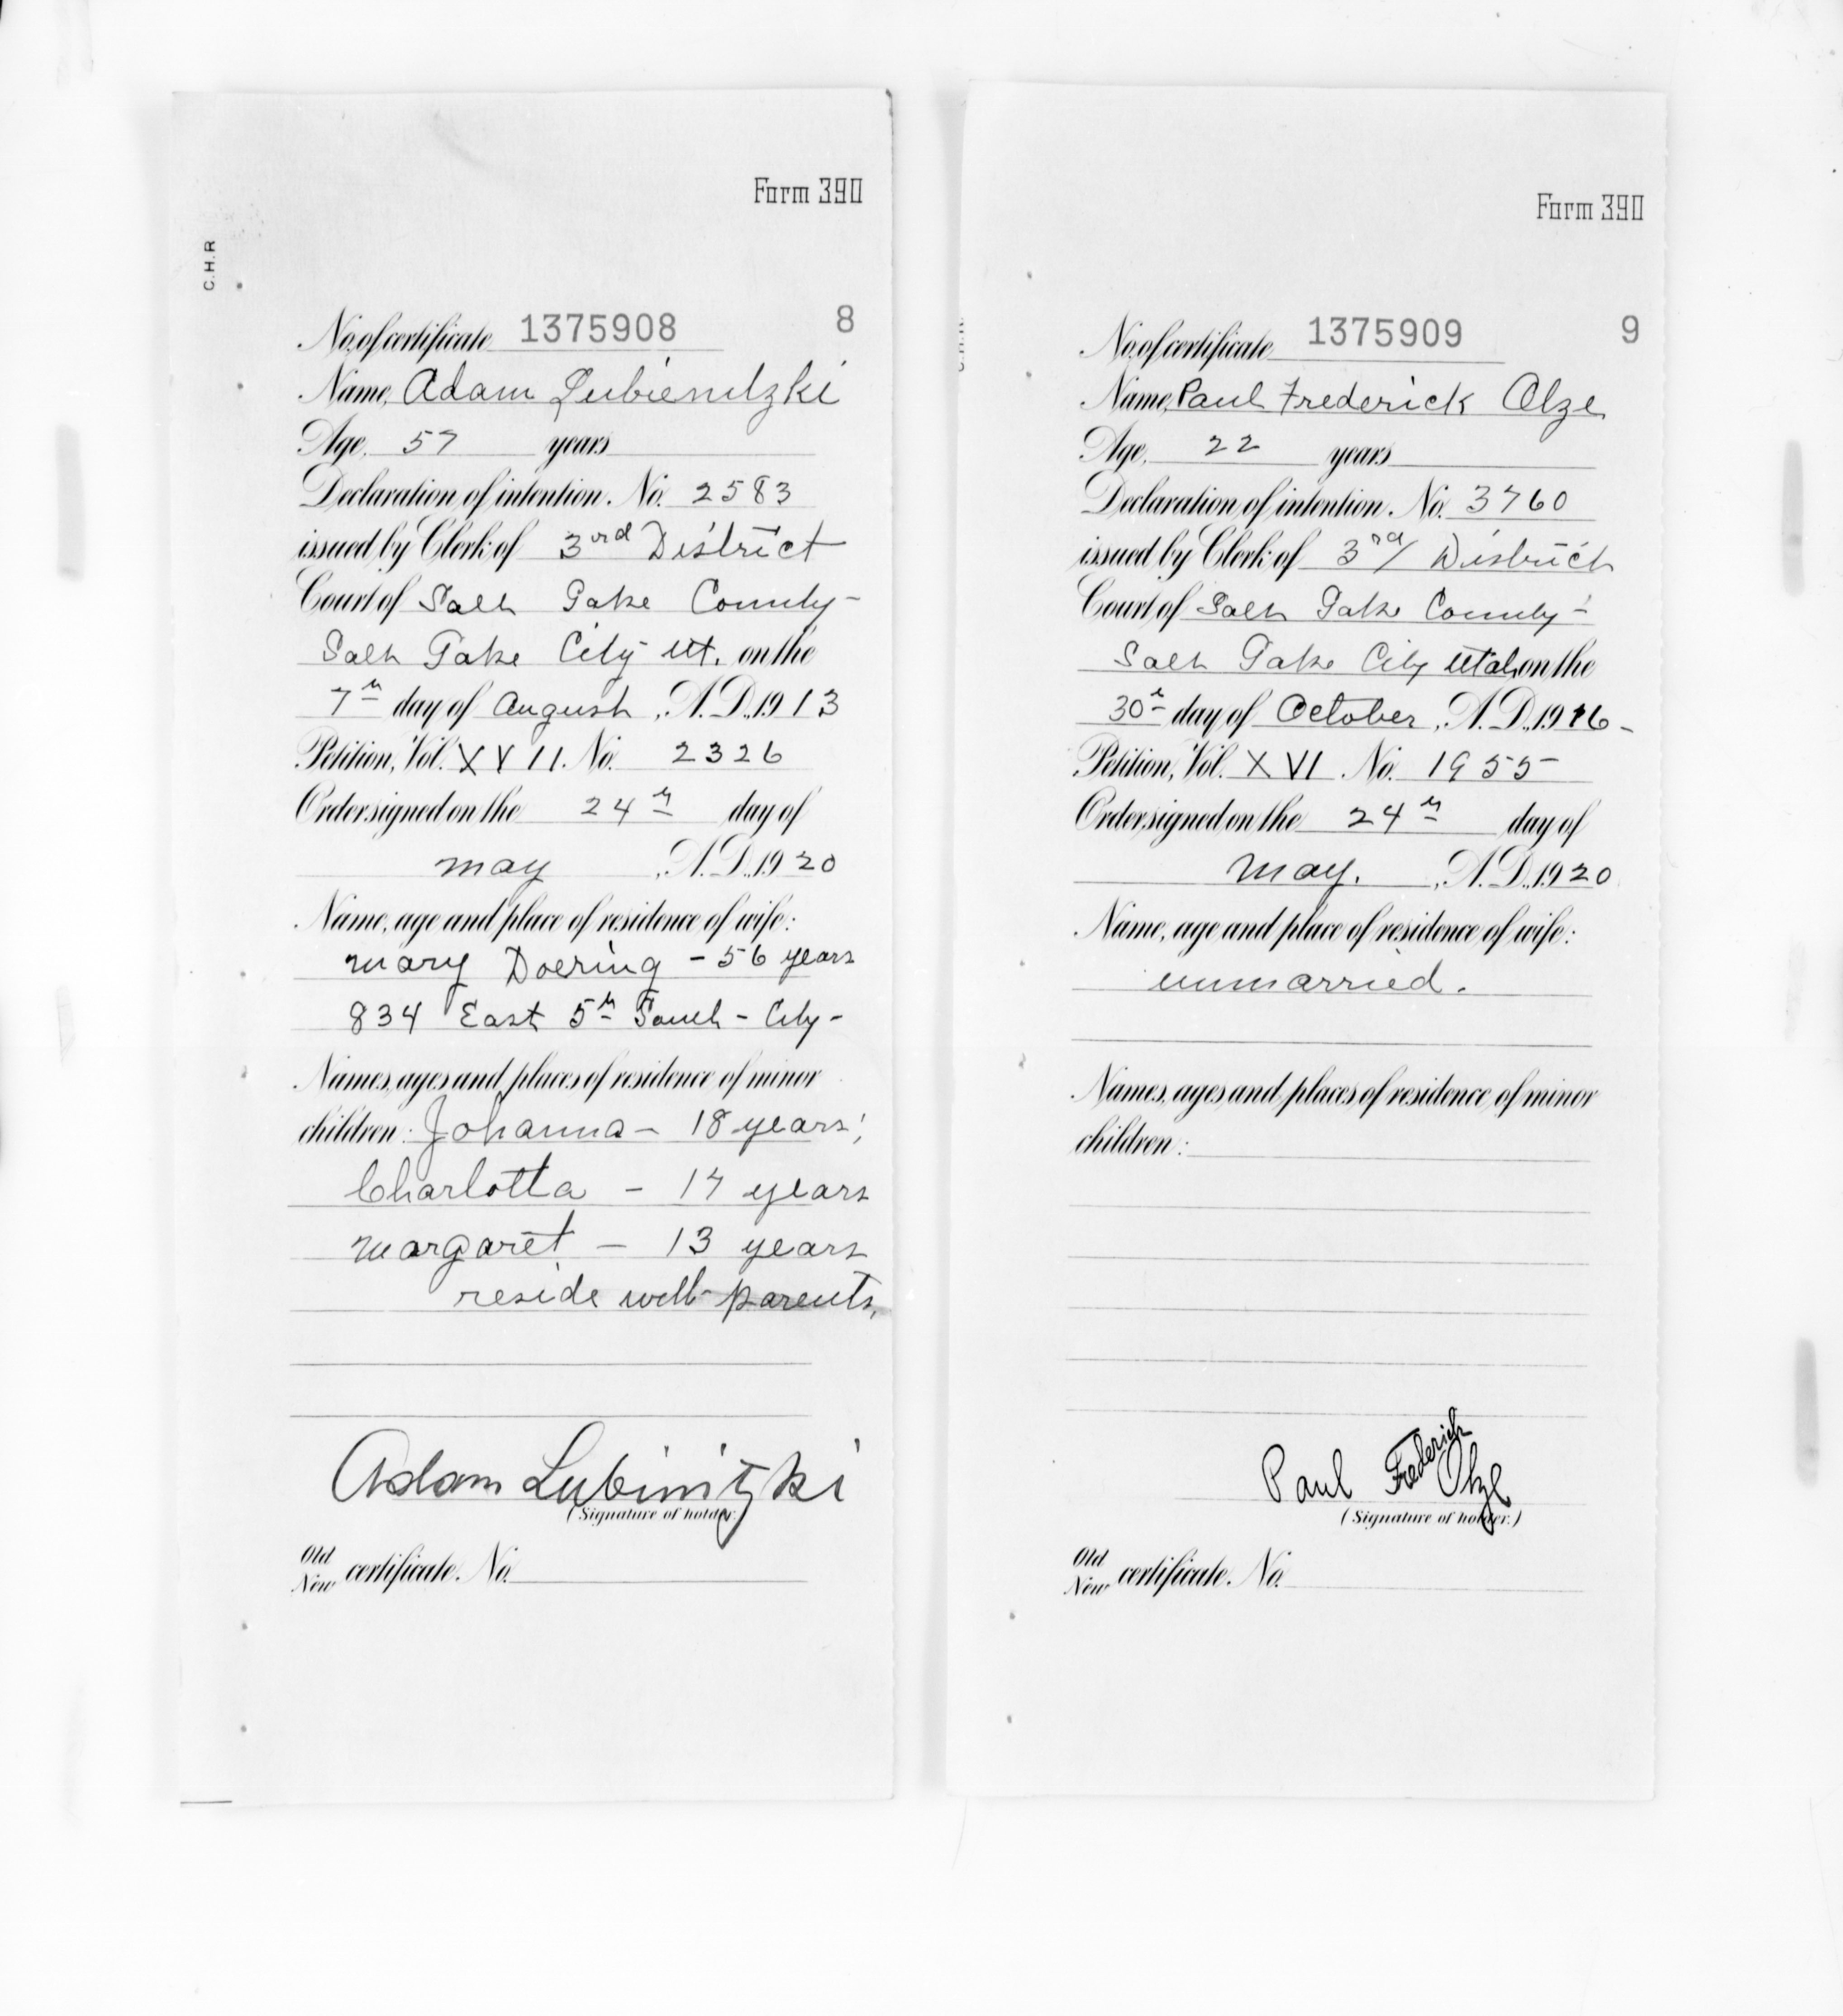 Form 390
C.H.R
No. of certificate 1375908 8
Name Adam Lubienitzki
Age, 57 years
Declaration of intention, No. 2583
issued by Clerk of 3rd District
Court of Salt Lake County-
Salt Lake City Ut. on the
7th day of August, A.D. 1913
Petition, Vol. XVII. No. 2326
Order signed on the 24th day of
May, A.D. 1920
Name, age and place of residence of wife:
Mary Doering - 56 years
834 East 5th South - City -
Names, ages and places of residence of minor
children: Johanna - 18 years;
Charlotta - 17 years
Margaret - 13 years
reside with parents.
Adam Lubinitzki
(Signature of holder.)
Old
New certificate, No.
Form 390
C.H.R.
No. of certificate 1375909 9
Name, Paul Frederick Olze
Age, 22 years
Declaration of intention, No. 3760
issued by Clerk of 3rd/ District
Court of Salt Lake County -
Salt Lake City Utah, on the
30th day of October, A.D. 1916 -
Petition, Vol. XVI. No. 1955
Order signed on the 24th day of
May. , A.D. 1920
Name, age and place of residence of wife:
unmarried.
Names, ages and places of residence of minor
children:
Paul Frederich Olze
(Signature of holder.)
Old
New certificate, No.